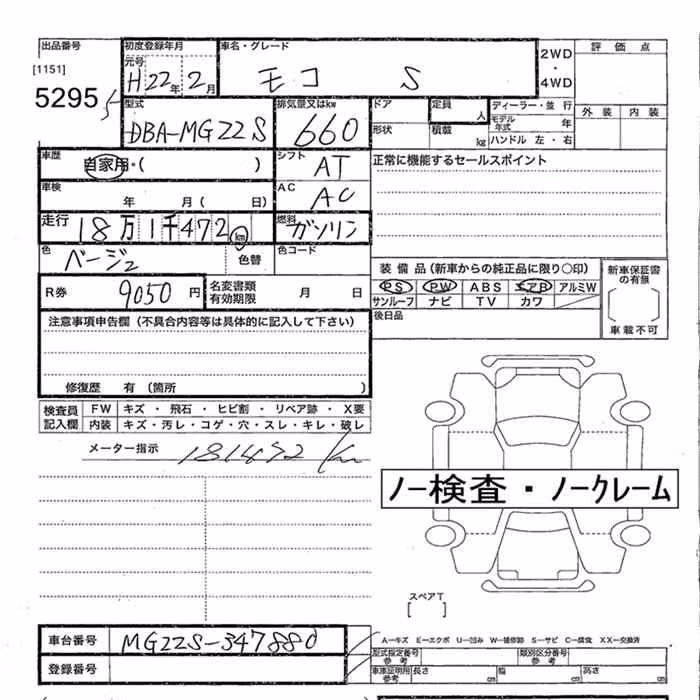 出品番号 初度登録年月 車名・グレード 2WD・4WD 評価点
[1151] 元号
5295 H22年 2月 モコ S
型式 排気量又はkw ドア 定員 人 ディーラー・並行 外装 内装
DBA-MG22S 660 形状 積載 kg モデル年式 年
ハンドル 左・右
車歴 自家用・( ) シフト AT 正常に機能するセールスポイント
車検 年 月( 日) AC AC
走行 18万1千472km 燃料 ガソリン
色 ベージュ 色替 色コード
装備品(新車からの純正品に限り○印) 新車保証書の有無
R券 9050円 名変書類有効期限 月 日 PS PW ABS エアB アルミW
サンルーフ ナビ TV カワ
後日品 車載不可
注意事項申告欄(不具合内容等は具体的に記入して下さい)
修復歴 有 (箇所 )
検査員記入欄 FW キズ・飛石・ヒビ割・リペア跡・X要
内装 キズ・汚レ・コゲ・穴・スレ・キレ・破レ
メーター指示 181472 Km
ノー検査・ノークレーム
スペアT
[ ]
車台番号 MG22S-347880
A-キズ E-エクボ U-凹み W-補修跡 S-サビ C-腐食 XX-交換済
登録番号 型式指定番号参考 類別区分番号参考
車車証明用参考 長さ cm 幅 cm 高さ cm